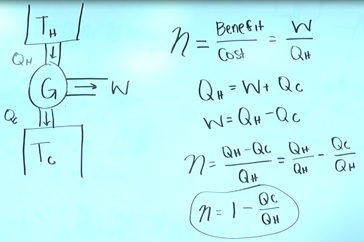 T_H
Q_H
G
W
Q_C
T_C
η = Benefit/Cost = W/Q_H
Q_H = W + Q_C
W = Q_H - Q_C
η = (Q_H - Q_C)/Q_H = Q_H/Q_H - Q_C/Q_H
η = 1 - Q_C/Q_H